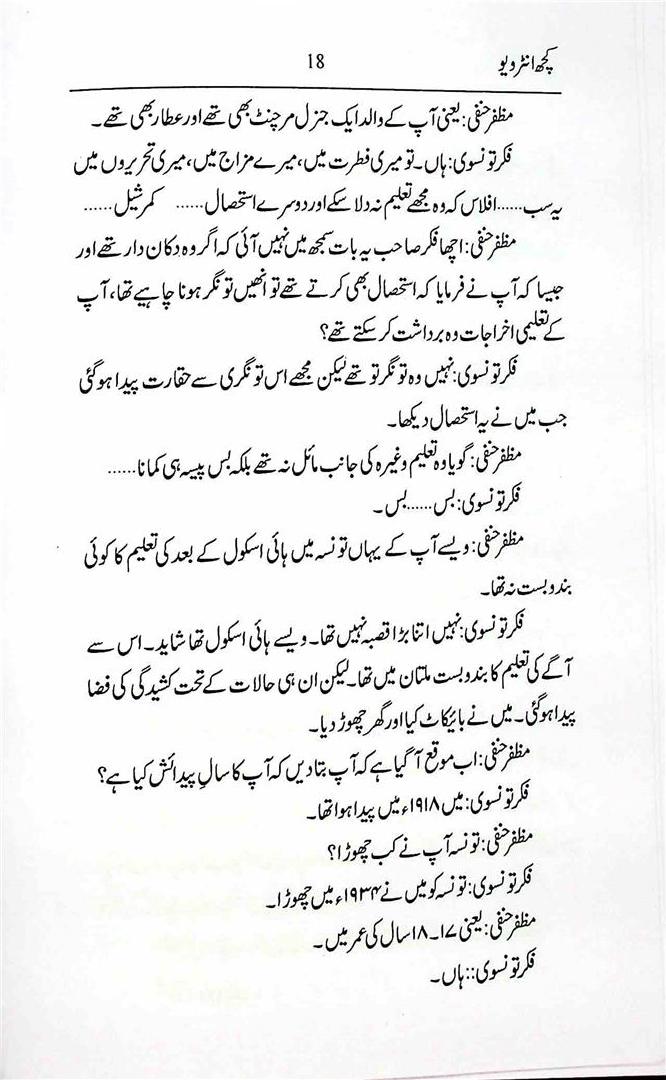 کچھ انٹرویو
18
مظفر حنفی: یعنی آپ کے والد ایک جنرل مرچنٹ بھی تھے اور عطار بھی تھے۔
فکر تونسوی: ہاں۔ تو میری فطرت میں، میرے مزاج میں، میری تحریروں میں
یہ سب...... افلاس کہ وہ مجھے تعلیم نہ دلا سکے اور دوسرے استحصال...... کمرشیل......
مظفر حنفی: اچھا فکر صاحب یہ بات سمجھ میں نہیں آئی کہ اگر وہ دکان دار تھے اور
جیسا کہ آپ نے فرمایا کہ استحصال بھی کرتے تھے تو انھیں تونگر ہونا چاہیے تھا، آپ
کے تعلیمی اخراجات وہ برداشت کر سکتے تھے؟
فکر تونسوی: نہیں وہ تونگر تو تھے لیکن مجھے اس تونگری سے حقارت پیدا ہوگئی
جب میں نے یہ استحصال دیکھا۔
مظفر حنفی: گویا وہ تعلیم وغیرہ کی جانب مائل نہ تھے بلکہ بس پیسہ ہی کمانا......
فکر تونسوی: بس......بس۔
مظفر حنفی: ویسے آپ کے یہاں تونسہ میں ہائی اسکول کے بعد کی تعلیم کا کوئی
بندوبست نہ تھا۔
فکر تونسوی: نہیں اتنا بڑا قصبہ نہیں تھا۔ ویسے ہائی اسکول تھا شاید۔ اس سے
آگے کی تعلیم کا بندوبست ملتان میں تھا۔ لیکن ان ہی حالات کے تحت کشیدگی کی فضا
پیدا ہوگئی۔ میں نے بائیکاٹ کیا اور گھر چھوڑ دیا۔
مظفر حنفی: اب موقع آ گیا ہے کہ آپ بتا دیں کہ آپ کا سالِ پیدائش کیا ہے؟
فکر تونسوی: میں ۱۹۱۸ء میں پیدا ہوا تھا۔
مظفر حنفی: تونسہ آپ نے کب چھوڑا؟
فکر تونسوی: تونسہ کو میں نے ۱۹۳۴ء میں چھوڑا۔
مظفر حنفی: یعنی ۱۷۔۱۸ سال کی عمر میں۔
فکر تونسوی:: ہاں۔